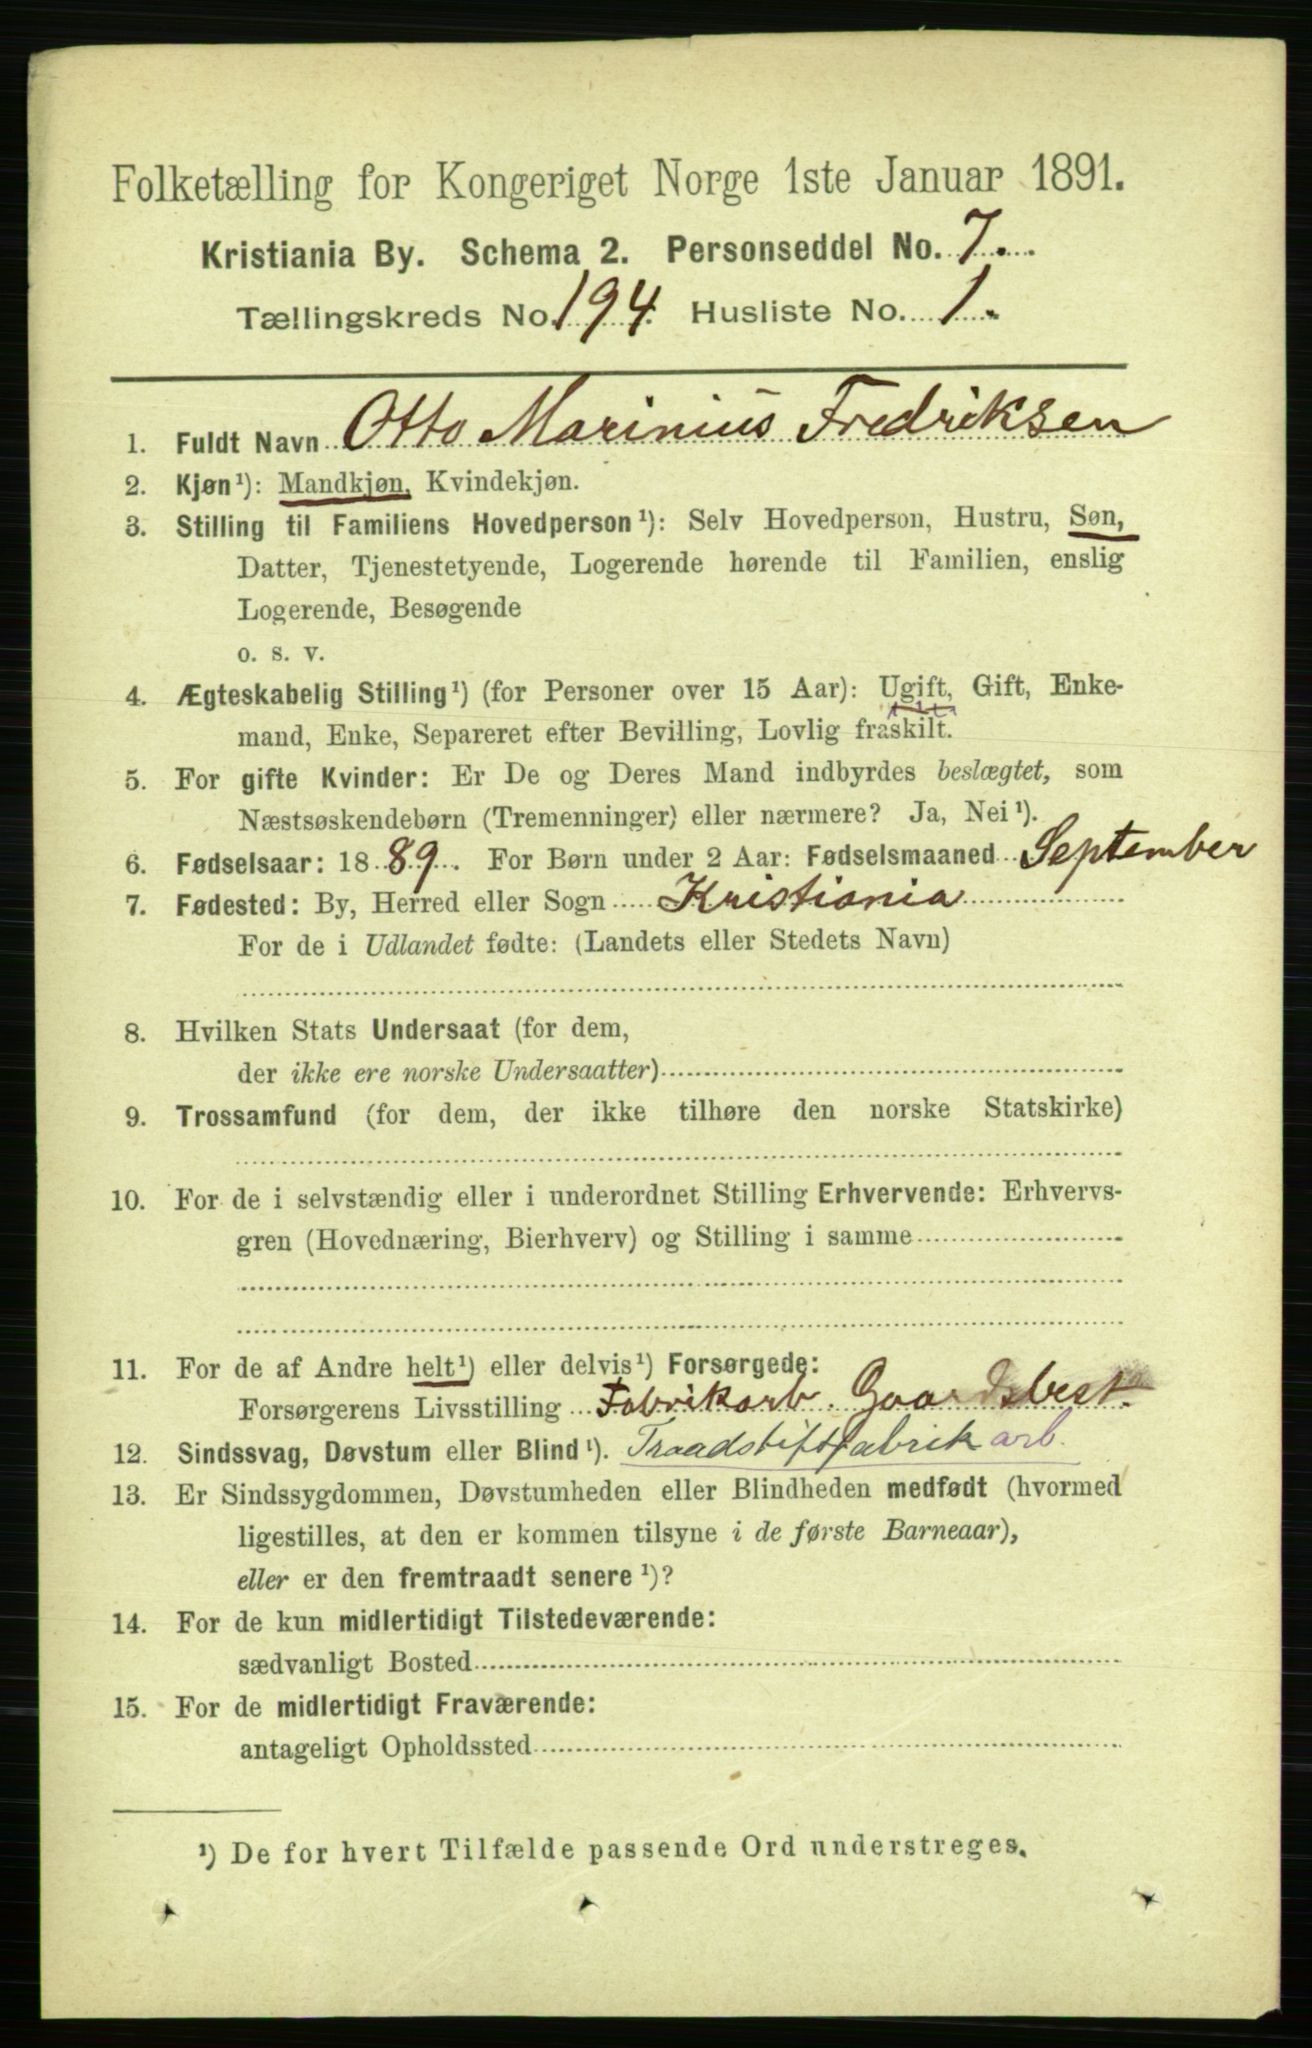 Folketælling for Kongeriget Norge 1ste Januar 1891.
Kristiania By. Schema 2. Personseddel No. 7.
Tællingskreds No. 194. Husliste No. 1.
1. Fuldt Navn Otto Marinius Fredriksen
2. Kjøn¹): Mandkjøn, Kvindekjøn.
3. Stilling til Familiens Hovedperson¹): Selv Hovedperson, Hustru, Søn,
Datter, Tjenestetyende, Logerende hørende til Familien, enslig
Logerende, Besøgende
o. s. v.
4. Ægteskabelig Stilling¹) (for Personer over 15 Aar): Ugift, Gift, Enke-
mand, Enke, Separeret efter Bevilling, Lovlig fraskilt.
5. For gifte Kvinder: Er De og Deres Mand indbyrdes beslægtet, som
Næstsøskendebørn (Tremenninger) eller nærmere? Ja, Nei¹).
6. Fødselsaar: 1889. For Børn under 2 Aar: Fødselsmaaned September
7. Fødested: By, Herred eller Sogn Kristiania
For de i Udlandet fødte: (Landets eller Stedets Navn)
8. Hvilken Stats Undersaat (for dem,
der ikke ere norske Undersaatter)
9. Trossamfund (for dem, der ikke tilhøre den norske Statskirke)
10. For de i selvstændig eller i underordnet Stilling Erhvervende: Erhvervs-
gren (Hovednæring, Bierhverv) og Stilling i samme
11. For de af Andre helt¹) eller delvis¹) Forsørgede:
Forsørgerens Livsstilling Fabrikarb. Gaardsbest.
12. Sindssvag, Døvstum eller Blind¹). Traadstiftfabrik arb.
13. Er Sindssygdommen, Døvstumheden eller Blindheden medfødt (hvormed
ligestilles, at den er kommen tilsyne i de første Barneaar),
eller er den fremtraadt senere¹)?
14. For de kun midlertidigt Tilstedeværende:
sædvanligt Bosted
15. For de midlertidigt Fraværende:
antageligt Opholdssted
¹) De for hvert Tilfælde passende Ord understreges.